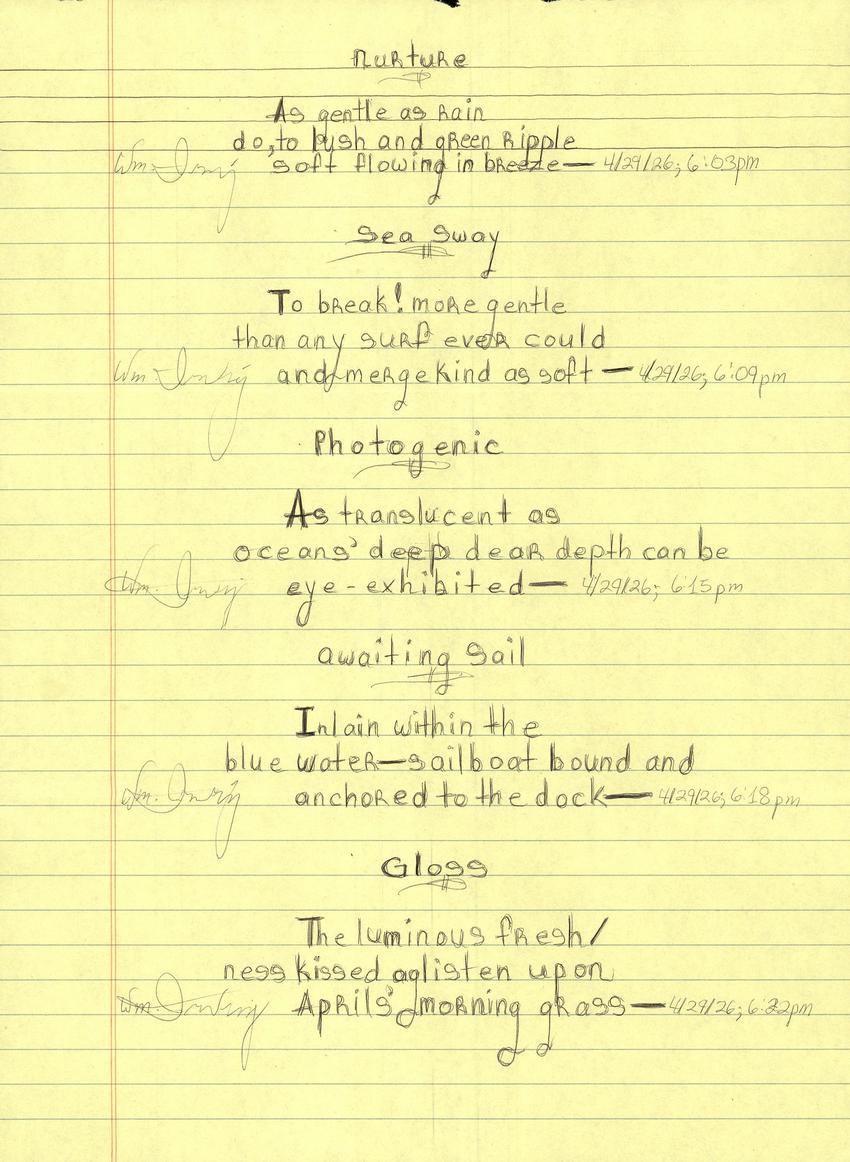 Nurture
As gentle as rain
do, to lush and green ripple
soft flowing in breeze— 4/29/26; 6:03pm
Sea Sway
To break! more gentle
than any surf ever could
and merge kind as soft — 4/29/26; 6:09pm
Photogenic
As translucent as
oceans' deep dear depth can be
eye-exhibited— 4/29/26; 6:15pm
awaiting sail
Inlain within the
blue water—sailboat bound and
anchored to the dock— 4/29/26; 6:18pm
Gloss
The luminous fresh/
ness kissed aglisten upon
Aprils' morning grass— 4/29/26; 6:22pm